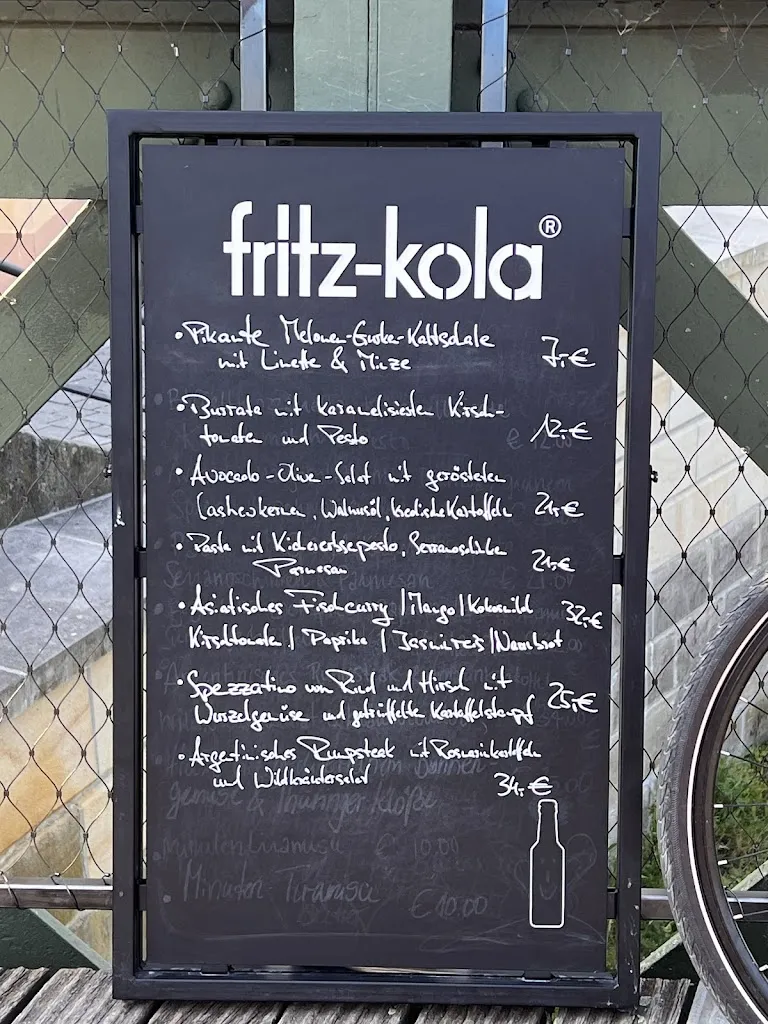 fritz-kola®
• Pikante Melonen-Gurken-Kaltschale
mit Limette & Minze 7,-€
• Burrata mit karamelisierten Kirsch-
tomaten und Pesto 12,-€
• Avocado-Olive-Salat mit gerösteten
Cashewkernen, Walnusöl, kretische Kartoffeln 21,-€
• Pasta mit Kichererbsepesto, Serranoschinken
Parmesan 21,-€
• Asiatisches Fischcurry | Mango | Kokosmilch 32,-€
Kirschtomaten | Paprika | Jasminreis | Naanbrot
• Spezzatino von Rind und Hirsch mit
Wurzelgemüse und getrüffelten Kartoffelstampf 25,-€
• Argentinisches Rumpsteak mit Rosmarinkartoffeln
und Wildkräutersalat 34,-€
gemüse & Thüringer Klöße
Minuten Tiramisu € 10.00
Minuten-Tiramisu € 10.00